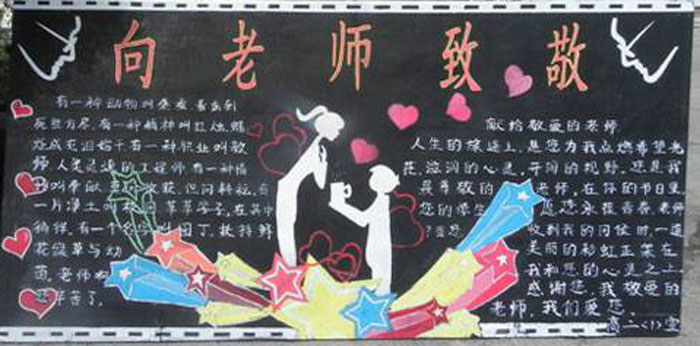 向老师致敬
有一种动物叫春蚕 蚕出到
死丝方尽,有一种精神叫红烛.蜡
炬成灰泪始干有一种职业叫教
师 人类灵魂的工程师 有一种情
叫奉献 但问耕耘,有
一片净土 莘莘学子,在其中
徜徉,有一个名字叫园丁,扶持鲜
花绿草与幼
苗,老师啊
您辛苦了,
献给敬爱的老师,
人生的旅途上,是您为我点燃希望光
芒,滋润的心灵,开阔的视野,您是我
最尊敬的 老师,在你的节日里
您的学生 愿您永葆青春,老师
收到我的问候时,一道
美丽的彩虹正架在
我和您的心灵之上
感谢您,我敬爱的
老师,我们爱您,
高二<1>宣